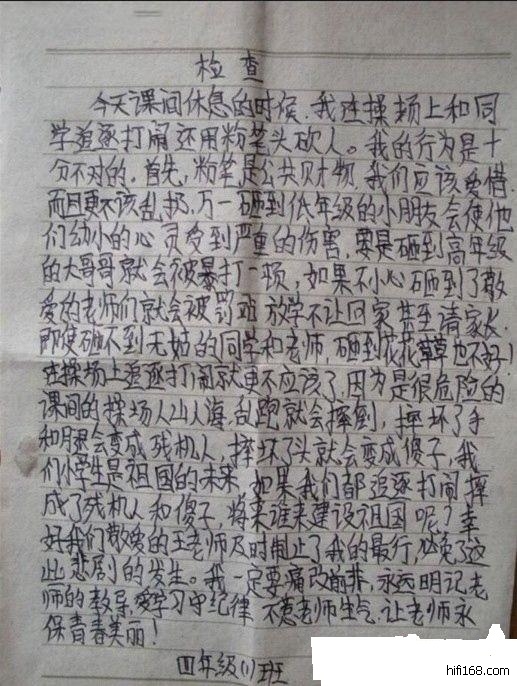 检查
今天课间休息的时候,我在操场上和同
学追逐打闹还用粉笔头砍人。我的行为是十
分不对的。首先,粉笔是公共财物,我们应该爱惜
而且更不该乱扔,万一砸到低年级的小朋友会使他
们幼小的心灵受到严重的伤害,要是砸到高年级
的大哥哥就会被暴打一顿,如果不小心砸到了敬
爱的老师们就会被罚站 放学不让回家 甚至请家长.
即使砸不到无姑的同学和老师,砸到花花草草也不好!
在操场上追逐打闹就更不应该了,因为是很危险的
课间的操场人山人海,乱跑就会摔倒,摔坏了手
和腿会变成残机人,摔坏了头就会变成傻子,我
们小学生是祖国的未来,如果我们都追逐打闹摔
成了残机人和傻子,将来谁来建设祖国呢?幸
好我们敬爱的王老师及时制止了我的最行,必免了这
此悲剧的发生。我一定要痛改前非,永远明记老
师的教导,爱学习守纪律 不惹老师生气.让老师永
保青春美丽!
四年级(1)班
hifi168.com